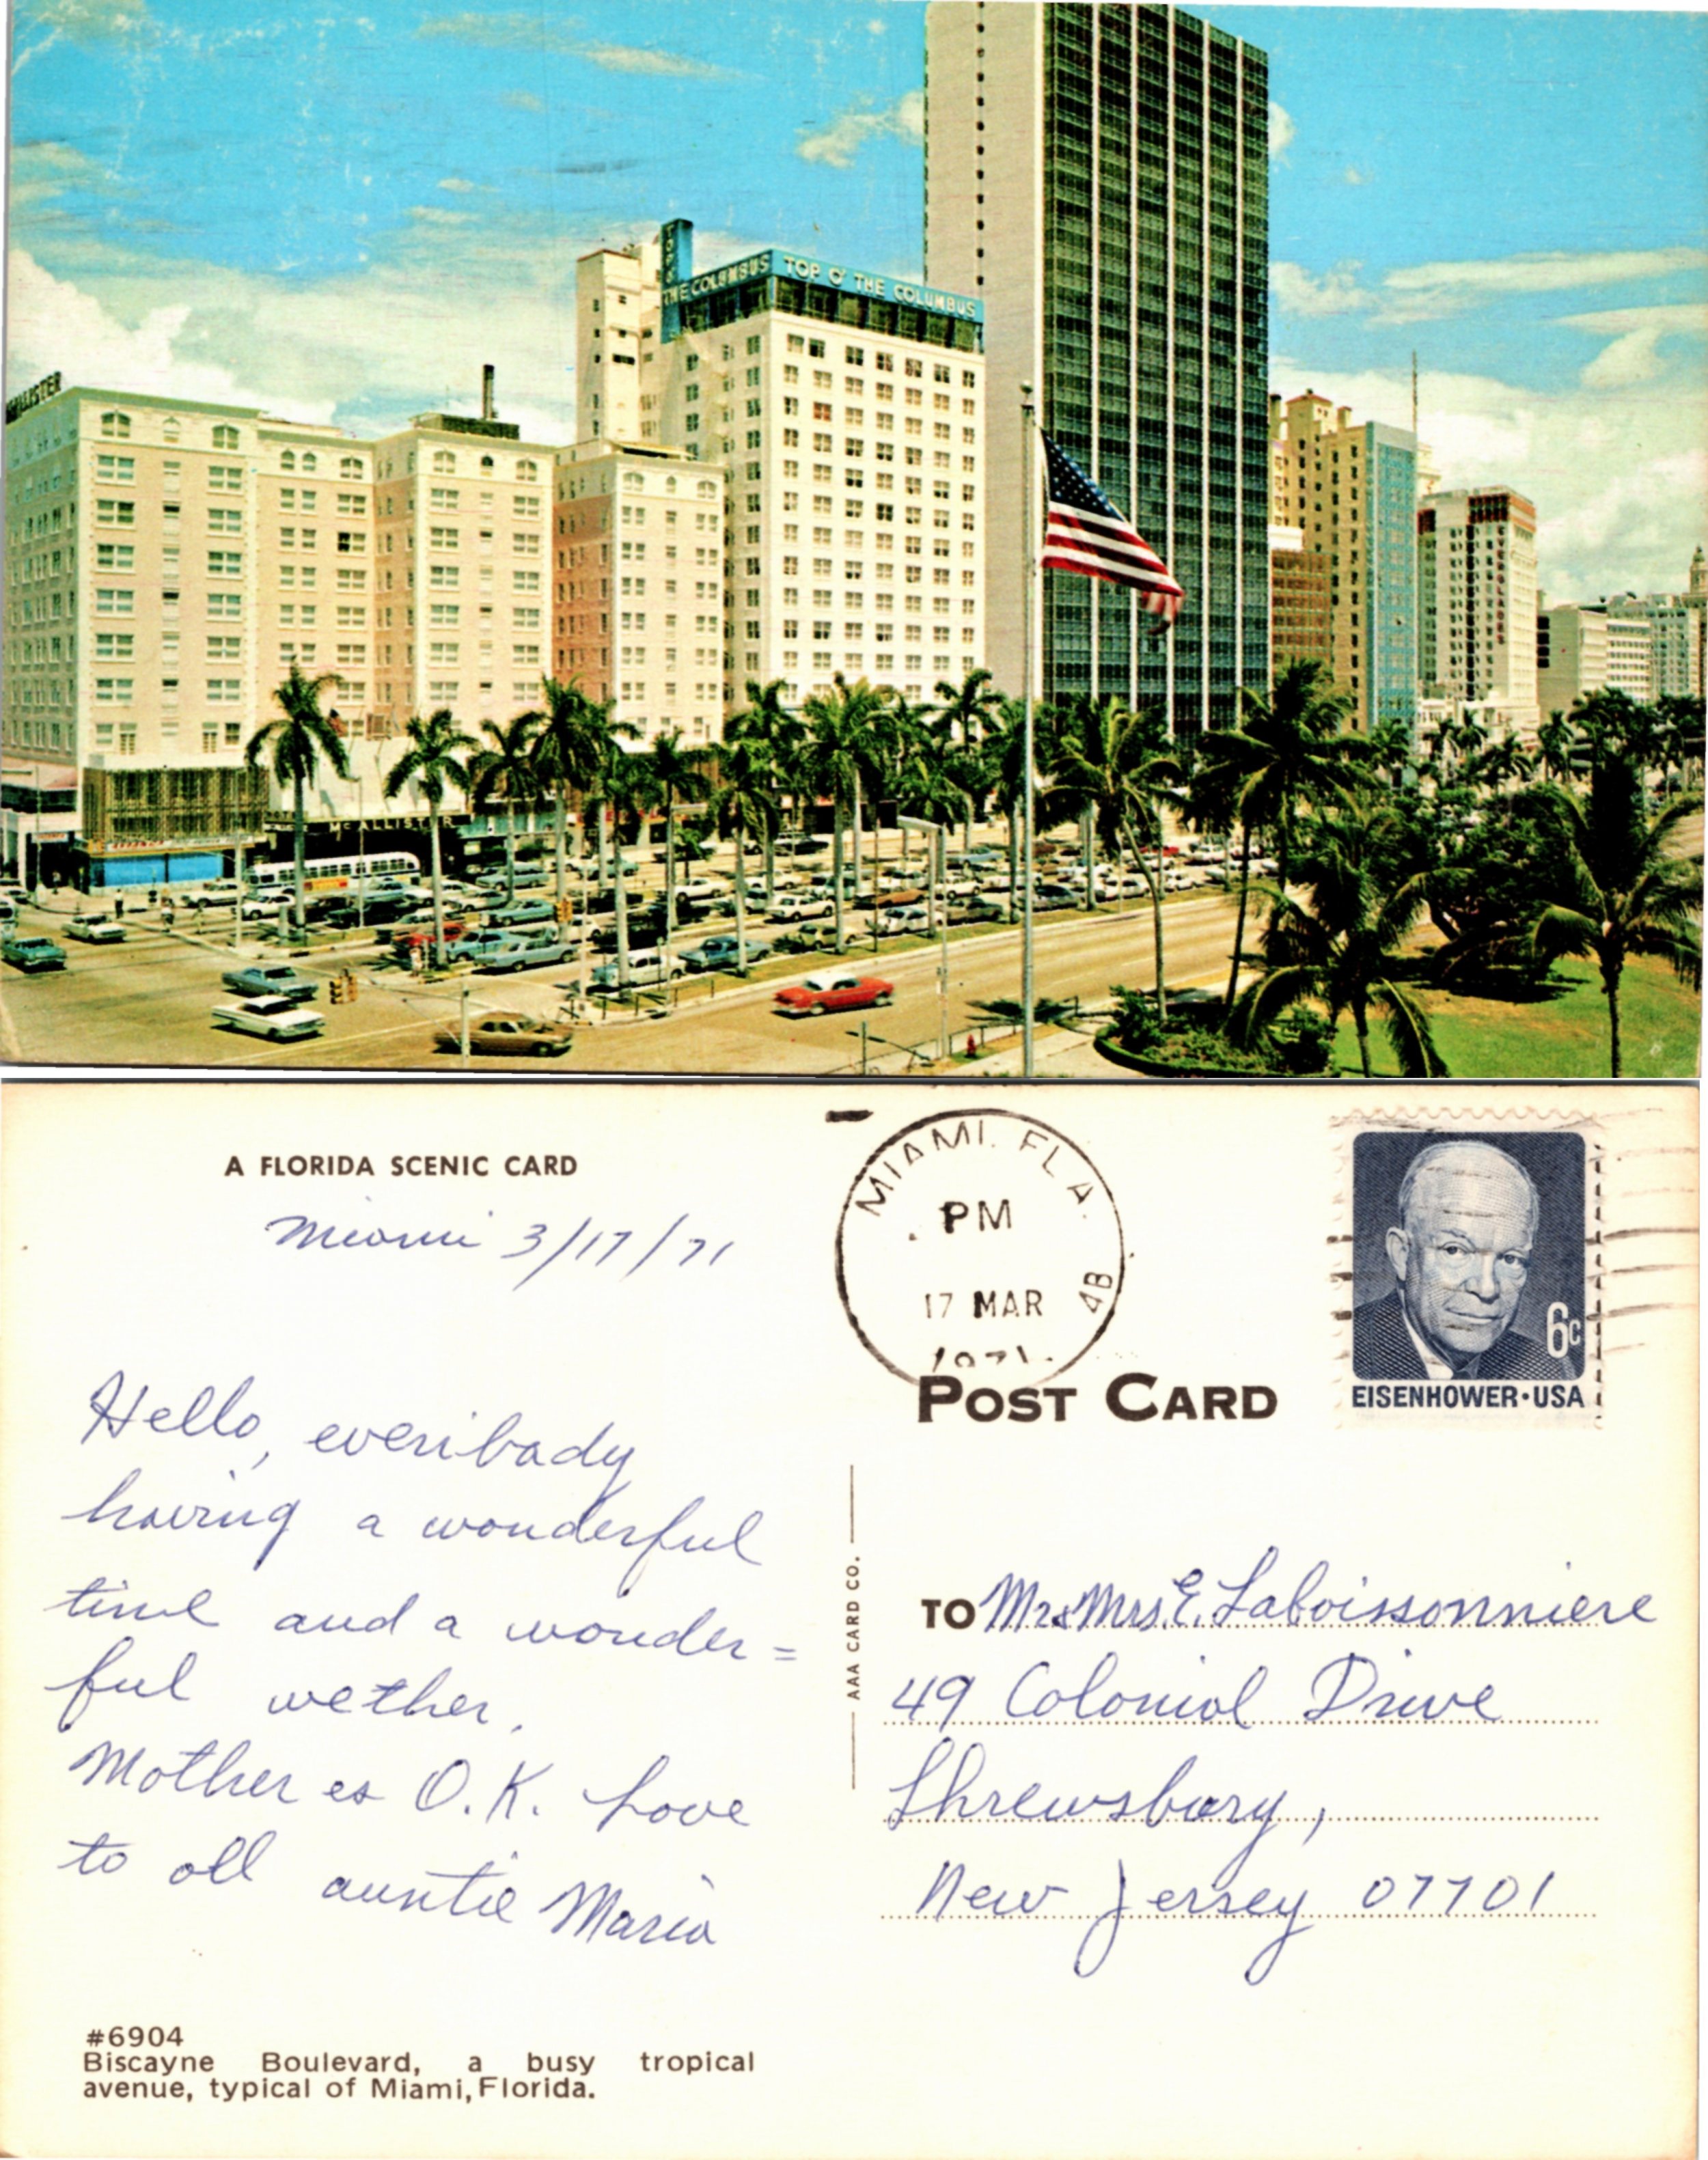 McALLISTER
TOP O' THE COLUMBUS
TOP O' THE COLUMBUS
McALLISTER
A FLORIDA SCENIC CARD
Miami 3/17/71
Hello, everibady
having a wonderful
time and a wonder=
ful wether,
Mother es O.K. Love
to all auntie Maria
#6904
Biscayne Boulevard, a busy tropical
avenue, typical of Miami, Florida.
AAA CARD CO.
MIAMI. FLA.
PM
17 MAR
4B
1971
6c
EISENHOWER·USA
POST CARD
TO Mr & Mrs. E. Laboissonniere
49 Colonial Drive
Shrewsbury,
New Jersey 07701